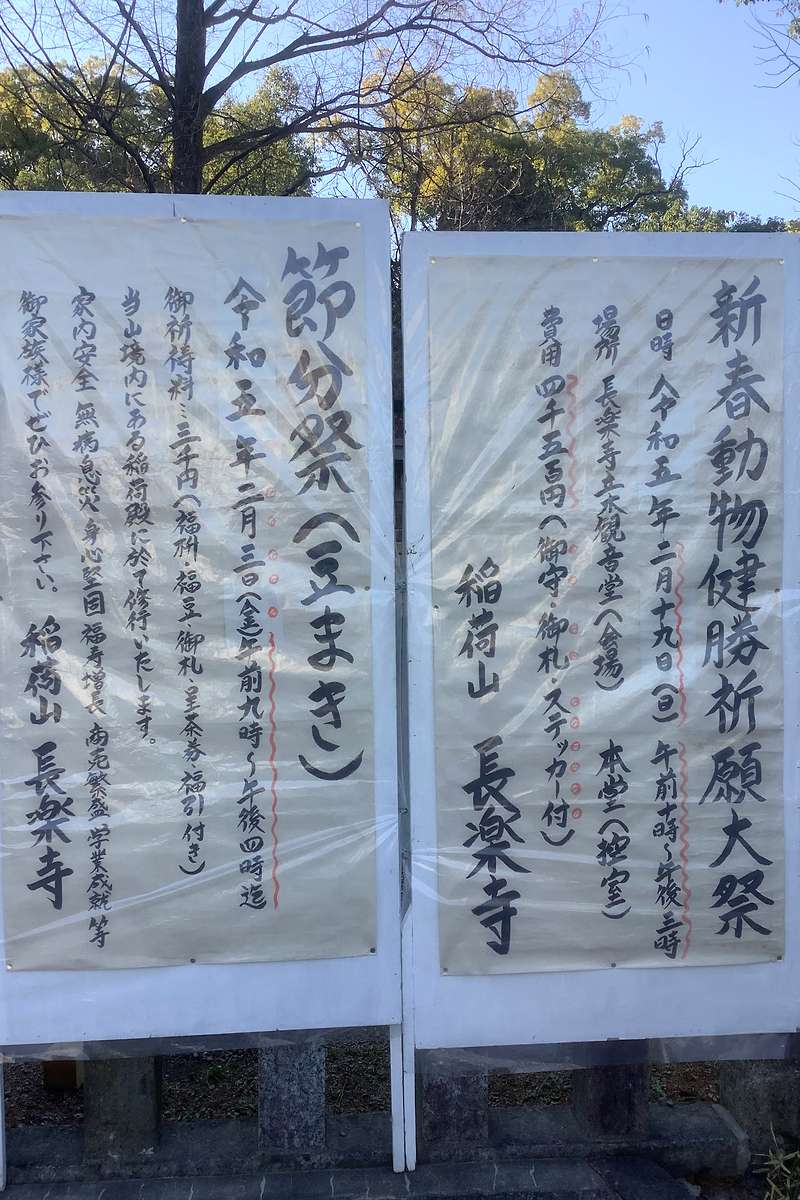 新春動物健勝祈願大祭
日時 令和五年二月十九日(日) 午前十時〜午後三時
場所 長楽寺立木観音堂(会場) 本堂(控室)
費用 四千五百円(御守・御札・ステッカー付)
稲荷山 長楽寺
節分祭(豆まき)
令和五年二月三日(金)午前九時〜午後四時迄
御祈祷料…三千円(福枡・福豆・御札・呈茶券・福引付き)
当山境内にある稲荷殿に於て修行いたします。
家内安全 無病息災 身心堅固 福寿増長 商売繁盛 学業成就 等
御家族様でぜひお参り下さい。 稲荷山 長楽寺